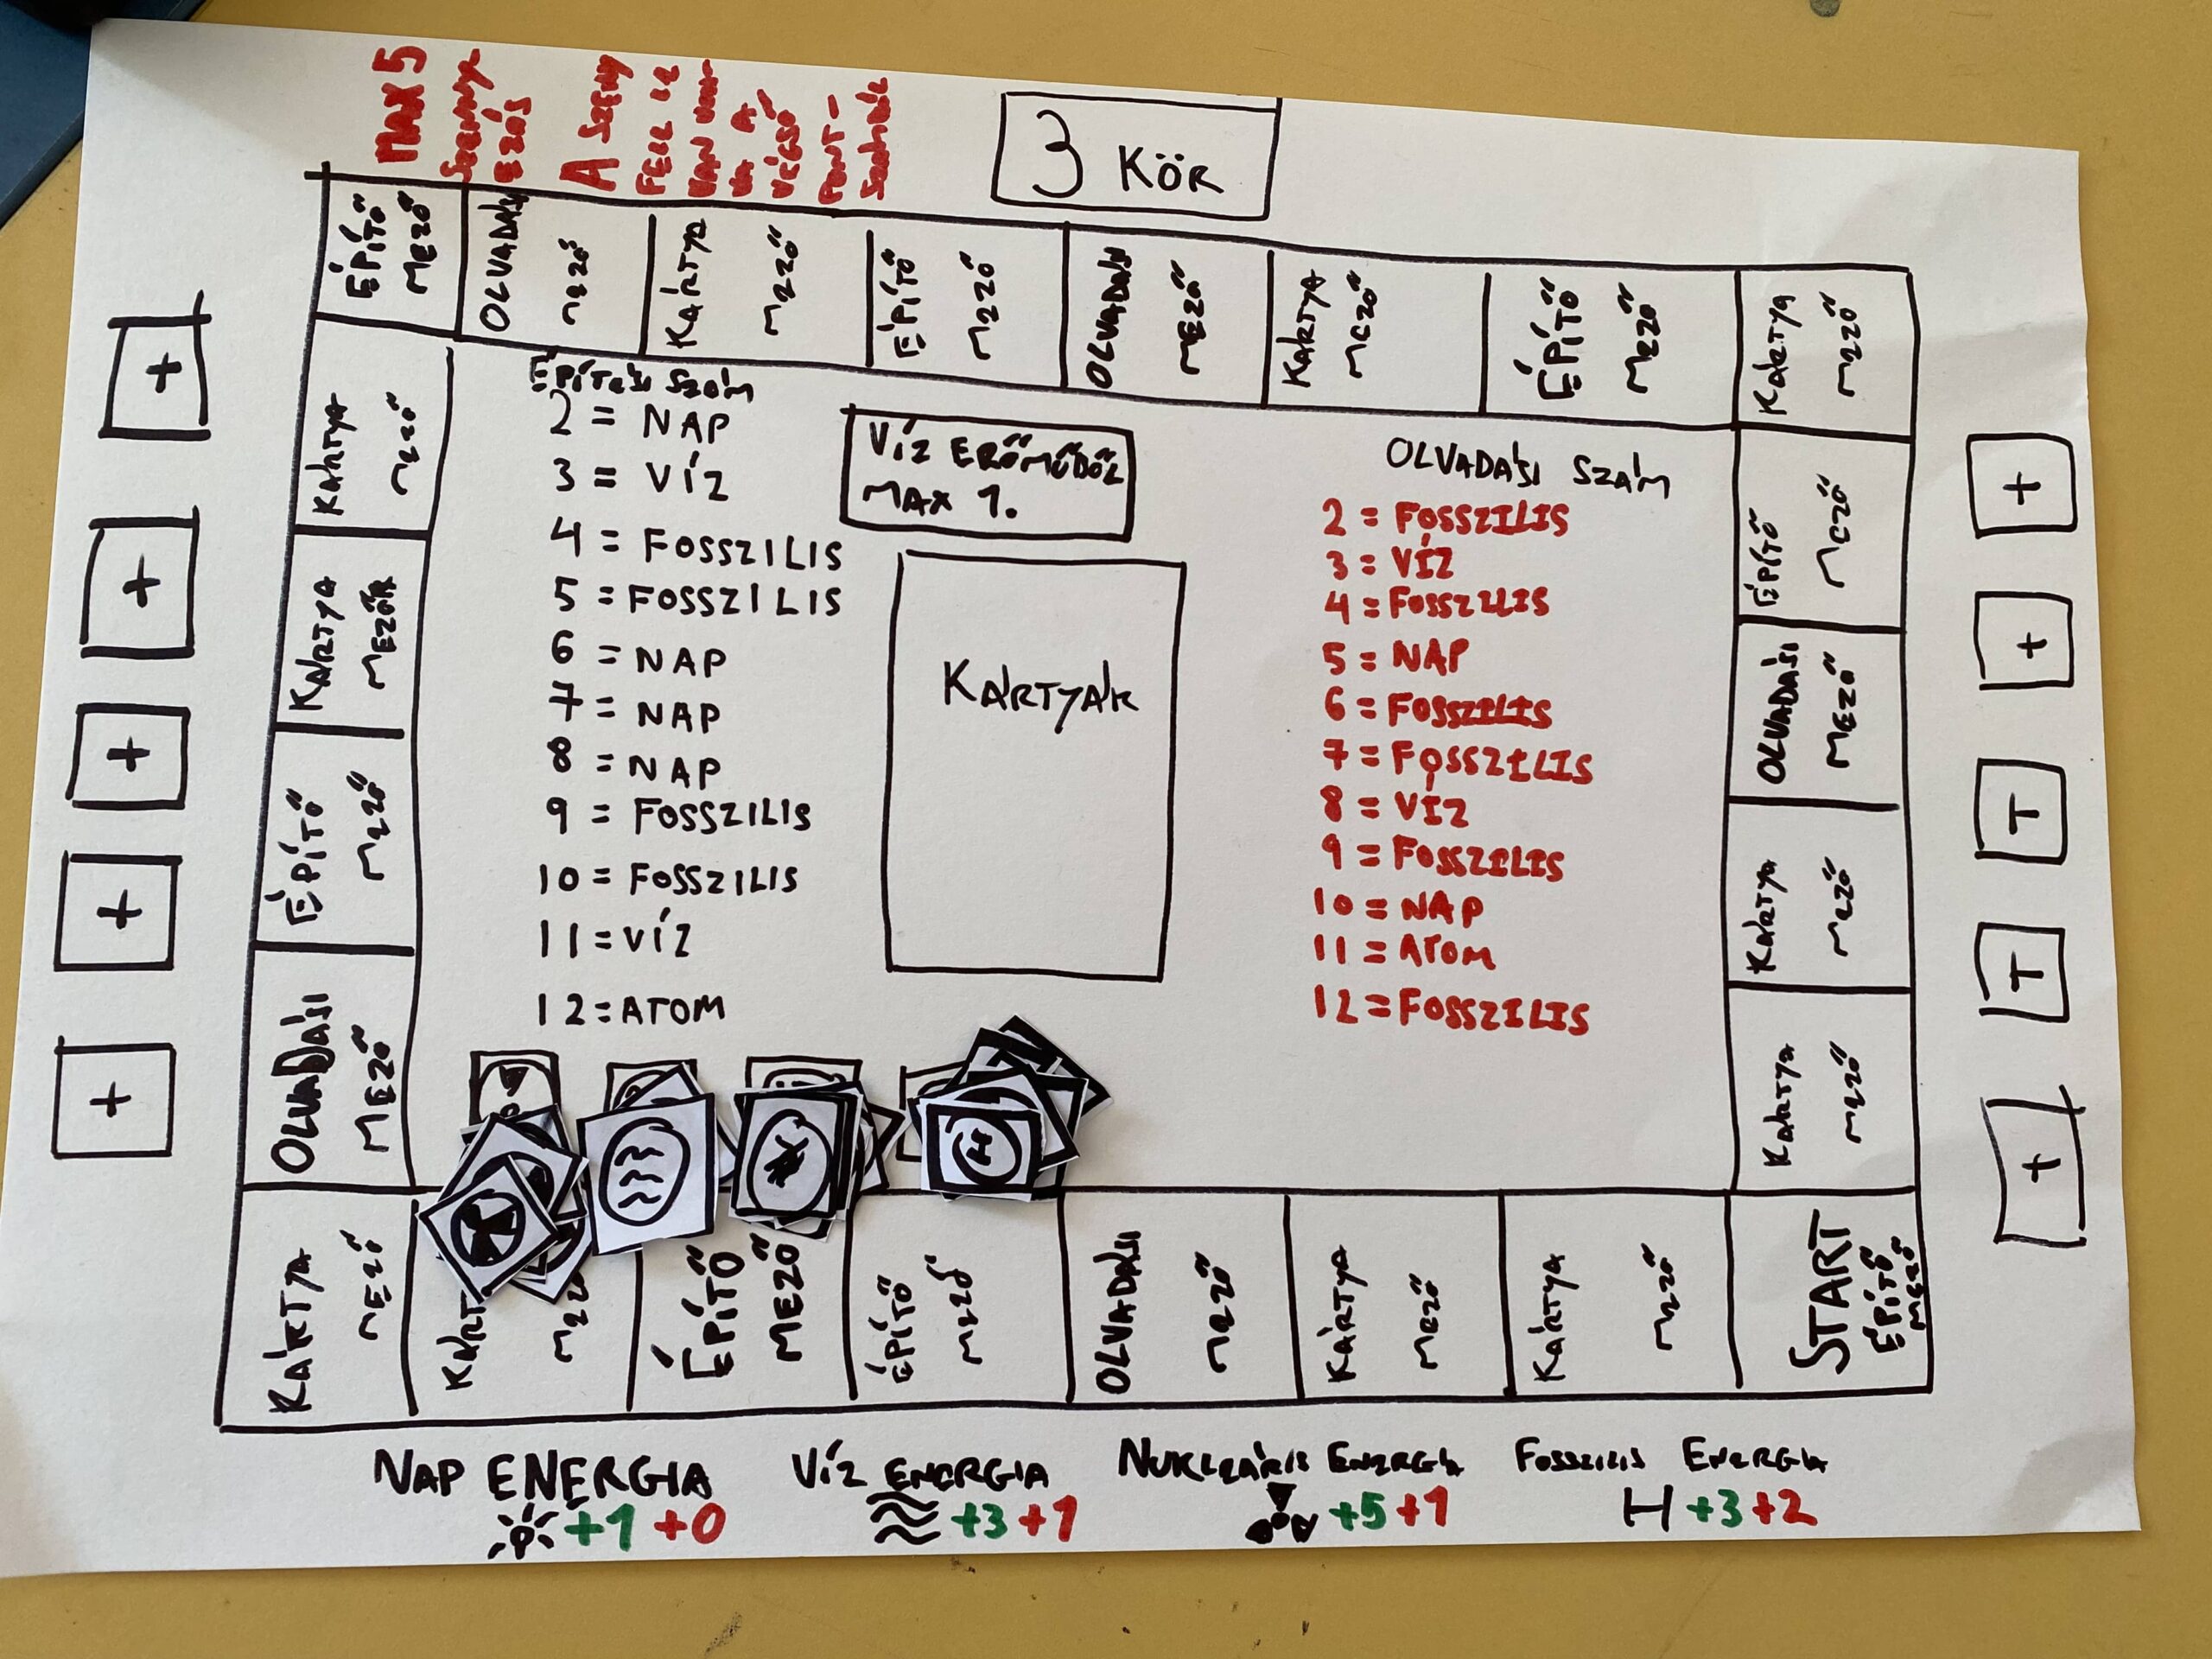 MAX 5
SZENNY
EZÉS
A SZENY
FELE LE
VAN VON
VA A
VÉGSŐ
PONT-
3 KÖR
ÉPÍTŐ
MEZŐ
OLVADÁSI
MEZŐ
KÁRTYA
MEZŐ
ÉPÍTŐ
MEZŐ
OLVADÁSI
MEZŐ
KÁRTYA
MEZŐ
ÉPÍTŐ
MEZŐ
KÁRTYA
MEZŐ
KÁRTYA
MEZŐ
KÁRTYA
MEZŐK
ÉPÍTŐ
MEZŐ
OLVADÁSI
MEZŐ
ÉPÍTÉSI SZÁM
2 = NAP
3 = VÍZ
4 = FOSSZILIS
5 = FOSSZILIS
6 = NAP
7 = NAP
8 = NAP
9 = FOSSZILIS
10 = FOSSZILIS
11 = VÍZ
12 = ATOM
VÍZ ERŐMŰBŐL
MAX 1.
KÁRTYÁK
OLVADÁSI SZÁM
2 = FOSSZILIS
3 = VÍZ
4 = FOSSZILIS
5 = NAP
6 = FOSSZILIS
7 = FOSSZILIS
8 = VÍZ
9 = FOSSZILIS
10 = NAP
11 = ATOM
12 = FOSSZILIS
ÉPÍTŐ
MEZŐ
OLVADÁSI
MEZŐ
KÁRTYA
MEZŐ
KÁRTYA
MEZŐ
KÁRTYA
MEZŐ
KÁRT
MEZŐ
ÉPÍTŐ
MEZŐ
ÉPÍTŐ
MEZŐ
OLVADÁSI
MEZŐ
KÁRTYA
MEZŐ
KÁRTYA
MEZŐ
START
ÉPÍTŐ
MEZŐ
H
+
+
+
+
+
+
+
T
T
+
NAP ENERGIA
+1 +0
VÍZ ENERGIA
+3 +1
NUKLEÁRIS ENERGIA
+5 +1
FOSSZILIS ENERGIA
H +3 +2